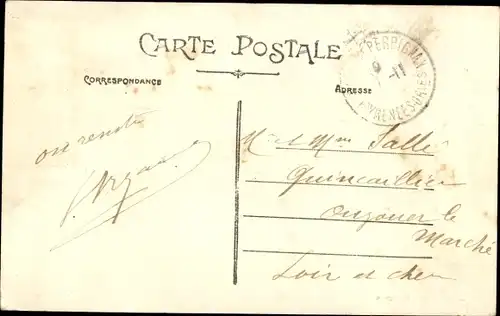 CARTE POSTALE
CORRESPONDANCE
ADRESSE
PERPIGNAN
9
11
PYRENEES-ORIES
on rendra
M et Mme Sallé
Quincaillier
Ouzouer le
Marché
Loir et cher